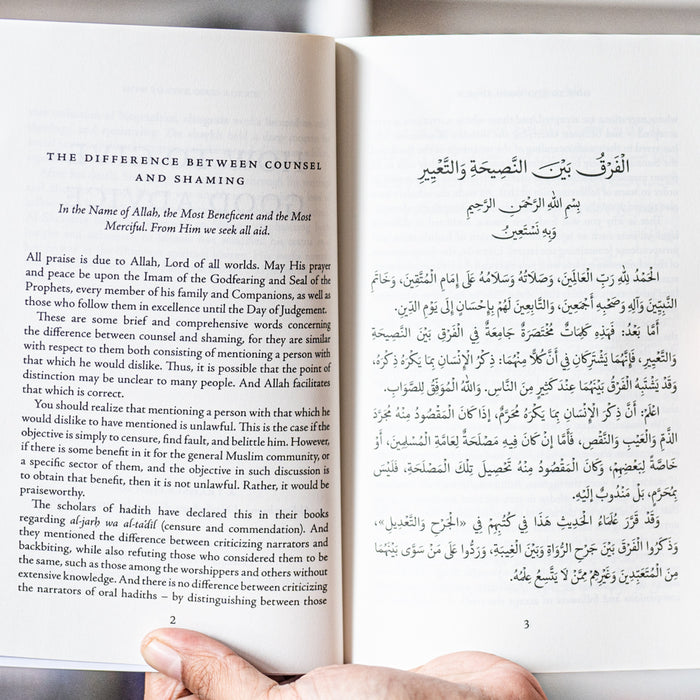 THE DIFFERENCE BETWEEN COUNSEL
AND SHAMING
In the Name of Allah, the Most Beneficent and the Most
Merciful. From Him we seek all aid.
All praise is due to Allah, Lord of all worlds. May His prayer
and peace be upon the Imam of the Godfearing and Seal of the
Prophets, every member of his family and Companions, as well as
those who follow them in excellence until the Day of Judgement.
These are some brief and comprehensive words concerning
the difference between counsel and shaming, for they are similar
with respect to them both consisting of mentioning a person with
that which he would dislike. Thus, it is possible that the point of
distinction may be unclear to many people. And Allah facilitates
that which is correct.
You should realize that mentioning a person with that which he
would dislike to have mentioned is unlawful. This is the case if the
objective is simply to censure, find fault, and belittle him. However,
if there is some benefit in it for the general Muslim community, or
a specific sector of them, and the objective in such discussion is
to obtain that benefit, then it is not unlawful. Rather, it would be
praiseworthy.
The scholars of hadith have declared this in their books
regarding al-jarḥ wa al-taʿdīl (censure and commendation). And
they mentioned the difference between criticizing narrators and
backbiting, while also refuting those who considered them to be
the same, such as those among the worshippers and others without
extensive knowledge. And there is no difference between criticizing
the narrators of oral hadiths – by distinguishing between those
2
الْفَرْقُ بَيْنَ النَّصِيحَةِ وَالتَّعْيِيرِ
بِسْمِ اللهِ الرَّحْمَنِ الرَّحِيمِ
وَبِهِ نَسْتَعِينُ
الْحَمْدُ لِلَّهِ رَبِّ الْعَالَمِينَ، وَصَلَاتُهُ وَسَلَامُهُ عَلَى إِمَامِ الْمُتَّقِينَ، وَخَاتَمِ
النَّبِيِّينَ وَآلِهِ وَصَحْبِهِ أَجْمَعِينَ، وَالتَّابِعِينَ لَهُمْ بِإِحْسَانٍ إِلَى يَوْمِ الدِّينِ.
أَمَّا بَعْدُ: فَهَذِهِ كَلِمَاتٌ مُخْتَصَرَةٌ جَامِعَةٌ فِي الْفَرْقِ بَيْنَ النَّصِيحَةِ
وَالتَّعْيِيرِ، فَإِنَّهُمَا يَشْتَرِكَانِ فِي أَنَّ كُلًّا مِنْهُمَا: ذِكْرُ الْإِنْسَانِ بِمَا يَكْرَهُ ذِكْرَهُ،
وَقَدْ يَشْتَبِهُ الْفَرْقُ بَيْنَهُمَا عِنْدَ كَثِيرٍ مِنَ النَّاسِ. وَاللهُ الْمُوَفِّقُ لِلصَّوَابِ.
اعْلَمْ: أَنَّ ذِكْرَ الْإِنْسَانِ بِمَا يَكْرَهُ مُحَرَّمٌ، إِذَا كَانَ الْمَقْصُودُ مِنْهُ مُجَرَّدَ
الذَّمِّ وَالْعَيْبِ وَالنَّقْصِ، فَأَمَّا إِنْ كَانَ فِيهِ مَصْلَحَةٌ لِعَامَّةِ الْمُسْلِمِينَ، أَوْ
خَاصَّةً لِبَعْضِهِمْ، وَكَانَ الْمَقْصُودُ مِنْهُ تَحْصِيلَ تِلْكَ الْمَصْلَحَةِ، فَلَيْسَ
بِمُحَرَّمٍ، بَلْ مَنْدُوبٌ إِلَيْهِ.
وَقَدْ قَرَّرَ عُلَمَاءُ الْحَدِيثِ هَذَا فِي كُتُبِهِمْ فِي «الْجَرْحِ وَالتَّعْدِيلِ»،
وَذَكَرُوا الْفَرْقَ بَيْنَ جَرْحِ الرُّوَاةِ وَبَيْنَ الْغِيبَةِ، وَرَدُّوا عَلَى مَنْ سَوَّى بَيْنَهُمَا
مِنَ الْمُتَعَبِّدِينَ وَغَيْرِهِمْ مِمَّنْ لَا يَتَّسِعُ عِلْمُهُ.
3